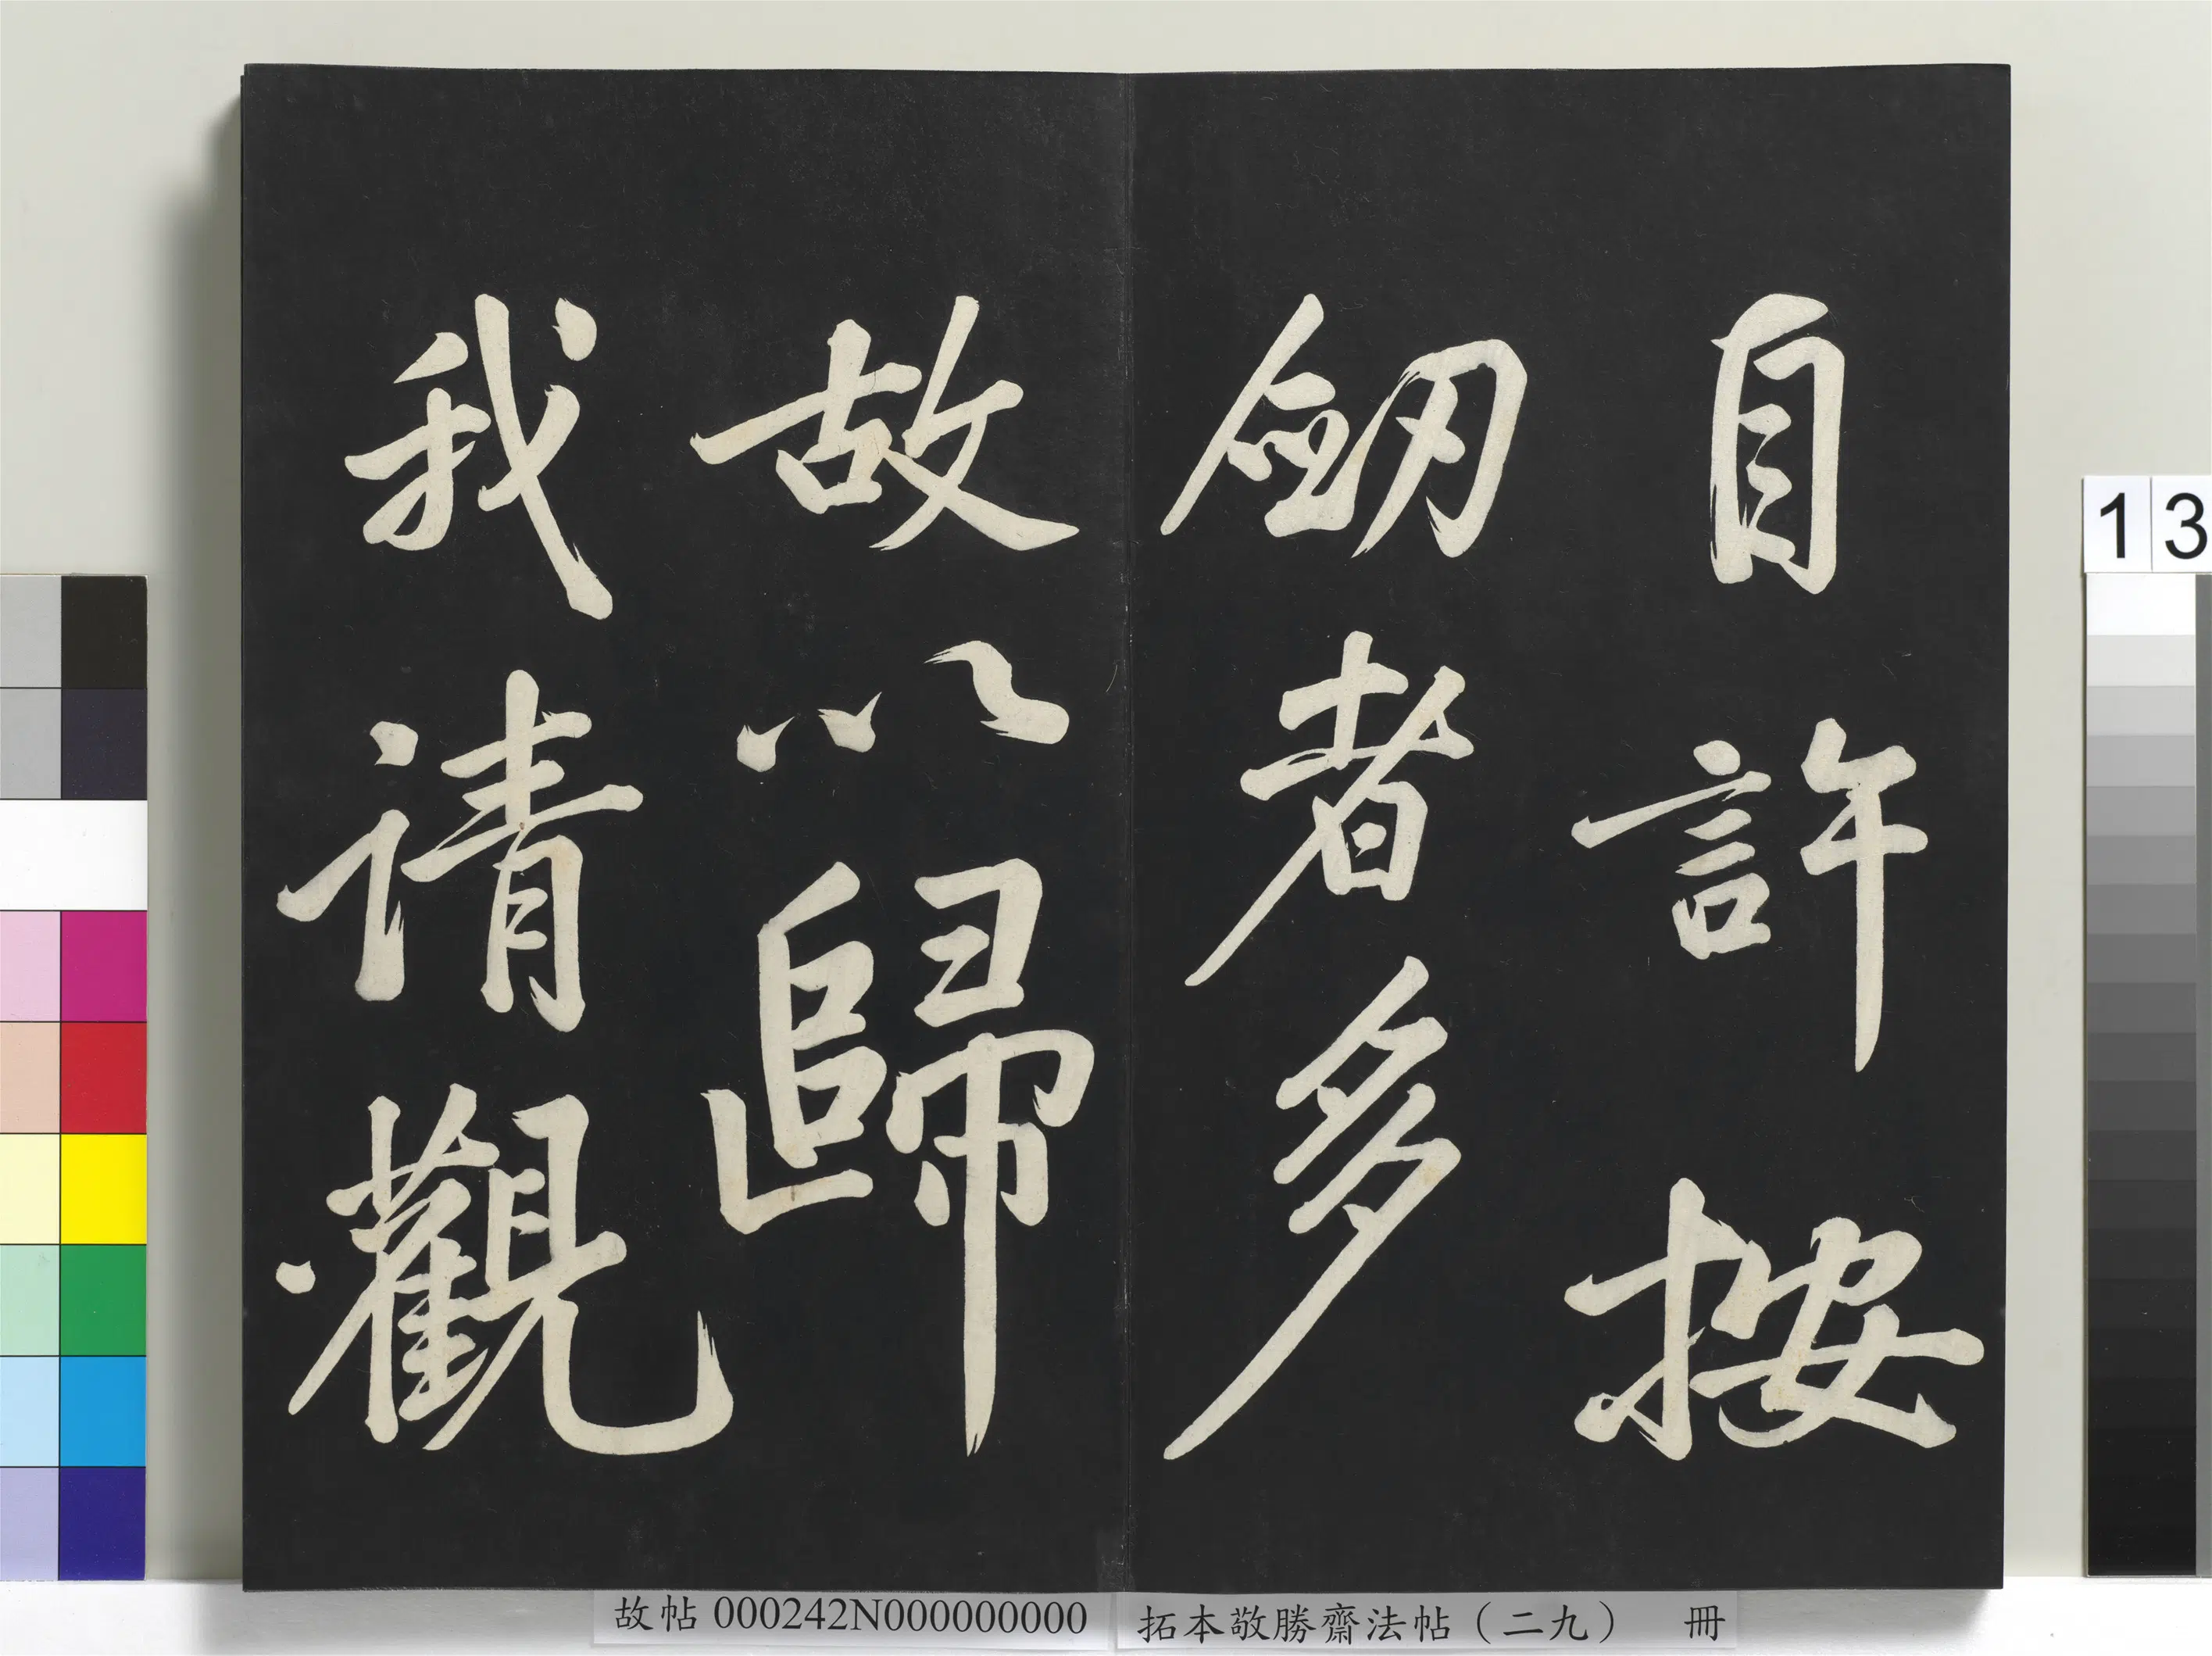 自許按
劒者多
故以歸
我请觀
13
故帖 000242N000000000
拓本敬勝齋法帖（二九） 冊